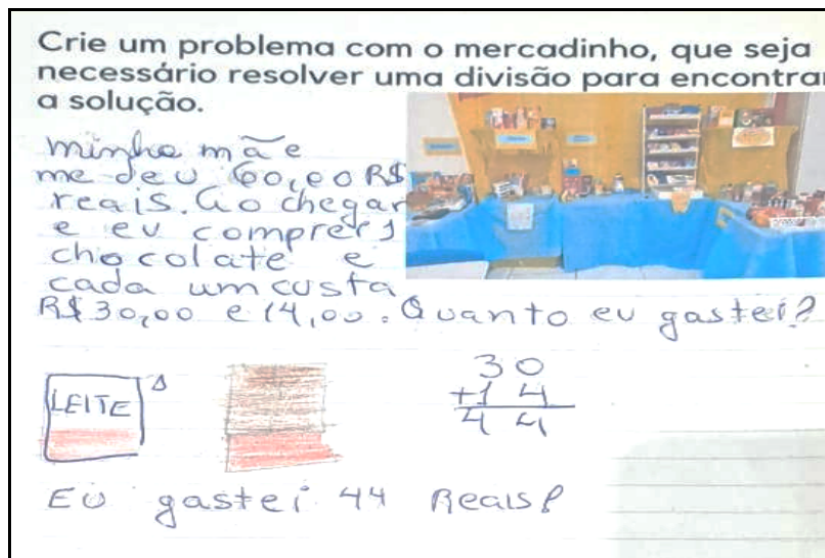 Crie um problema com o mercadinho, que seja
necessário resolver uma divisão para encontrar
a solução.
minha mãe
me deu 60,00 R$
reais. Ao chegar
e eu comprei
chocolate e
cada um custa
R$30,00 e 14,00. Quanto eu gastei?
LEITE
30
+14
44
Eu gastei 44 Reais